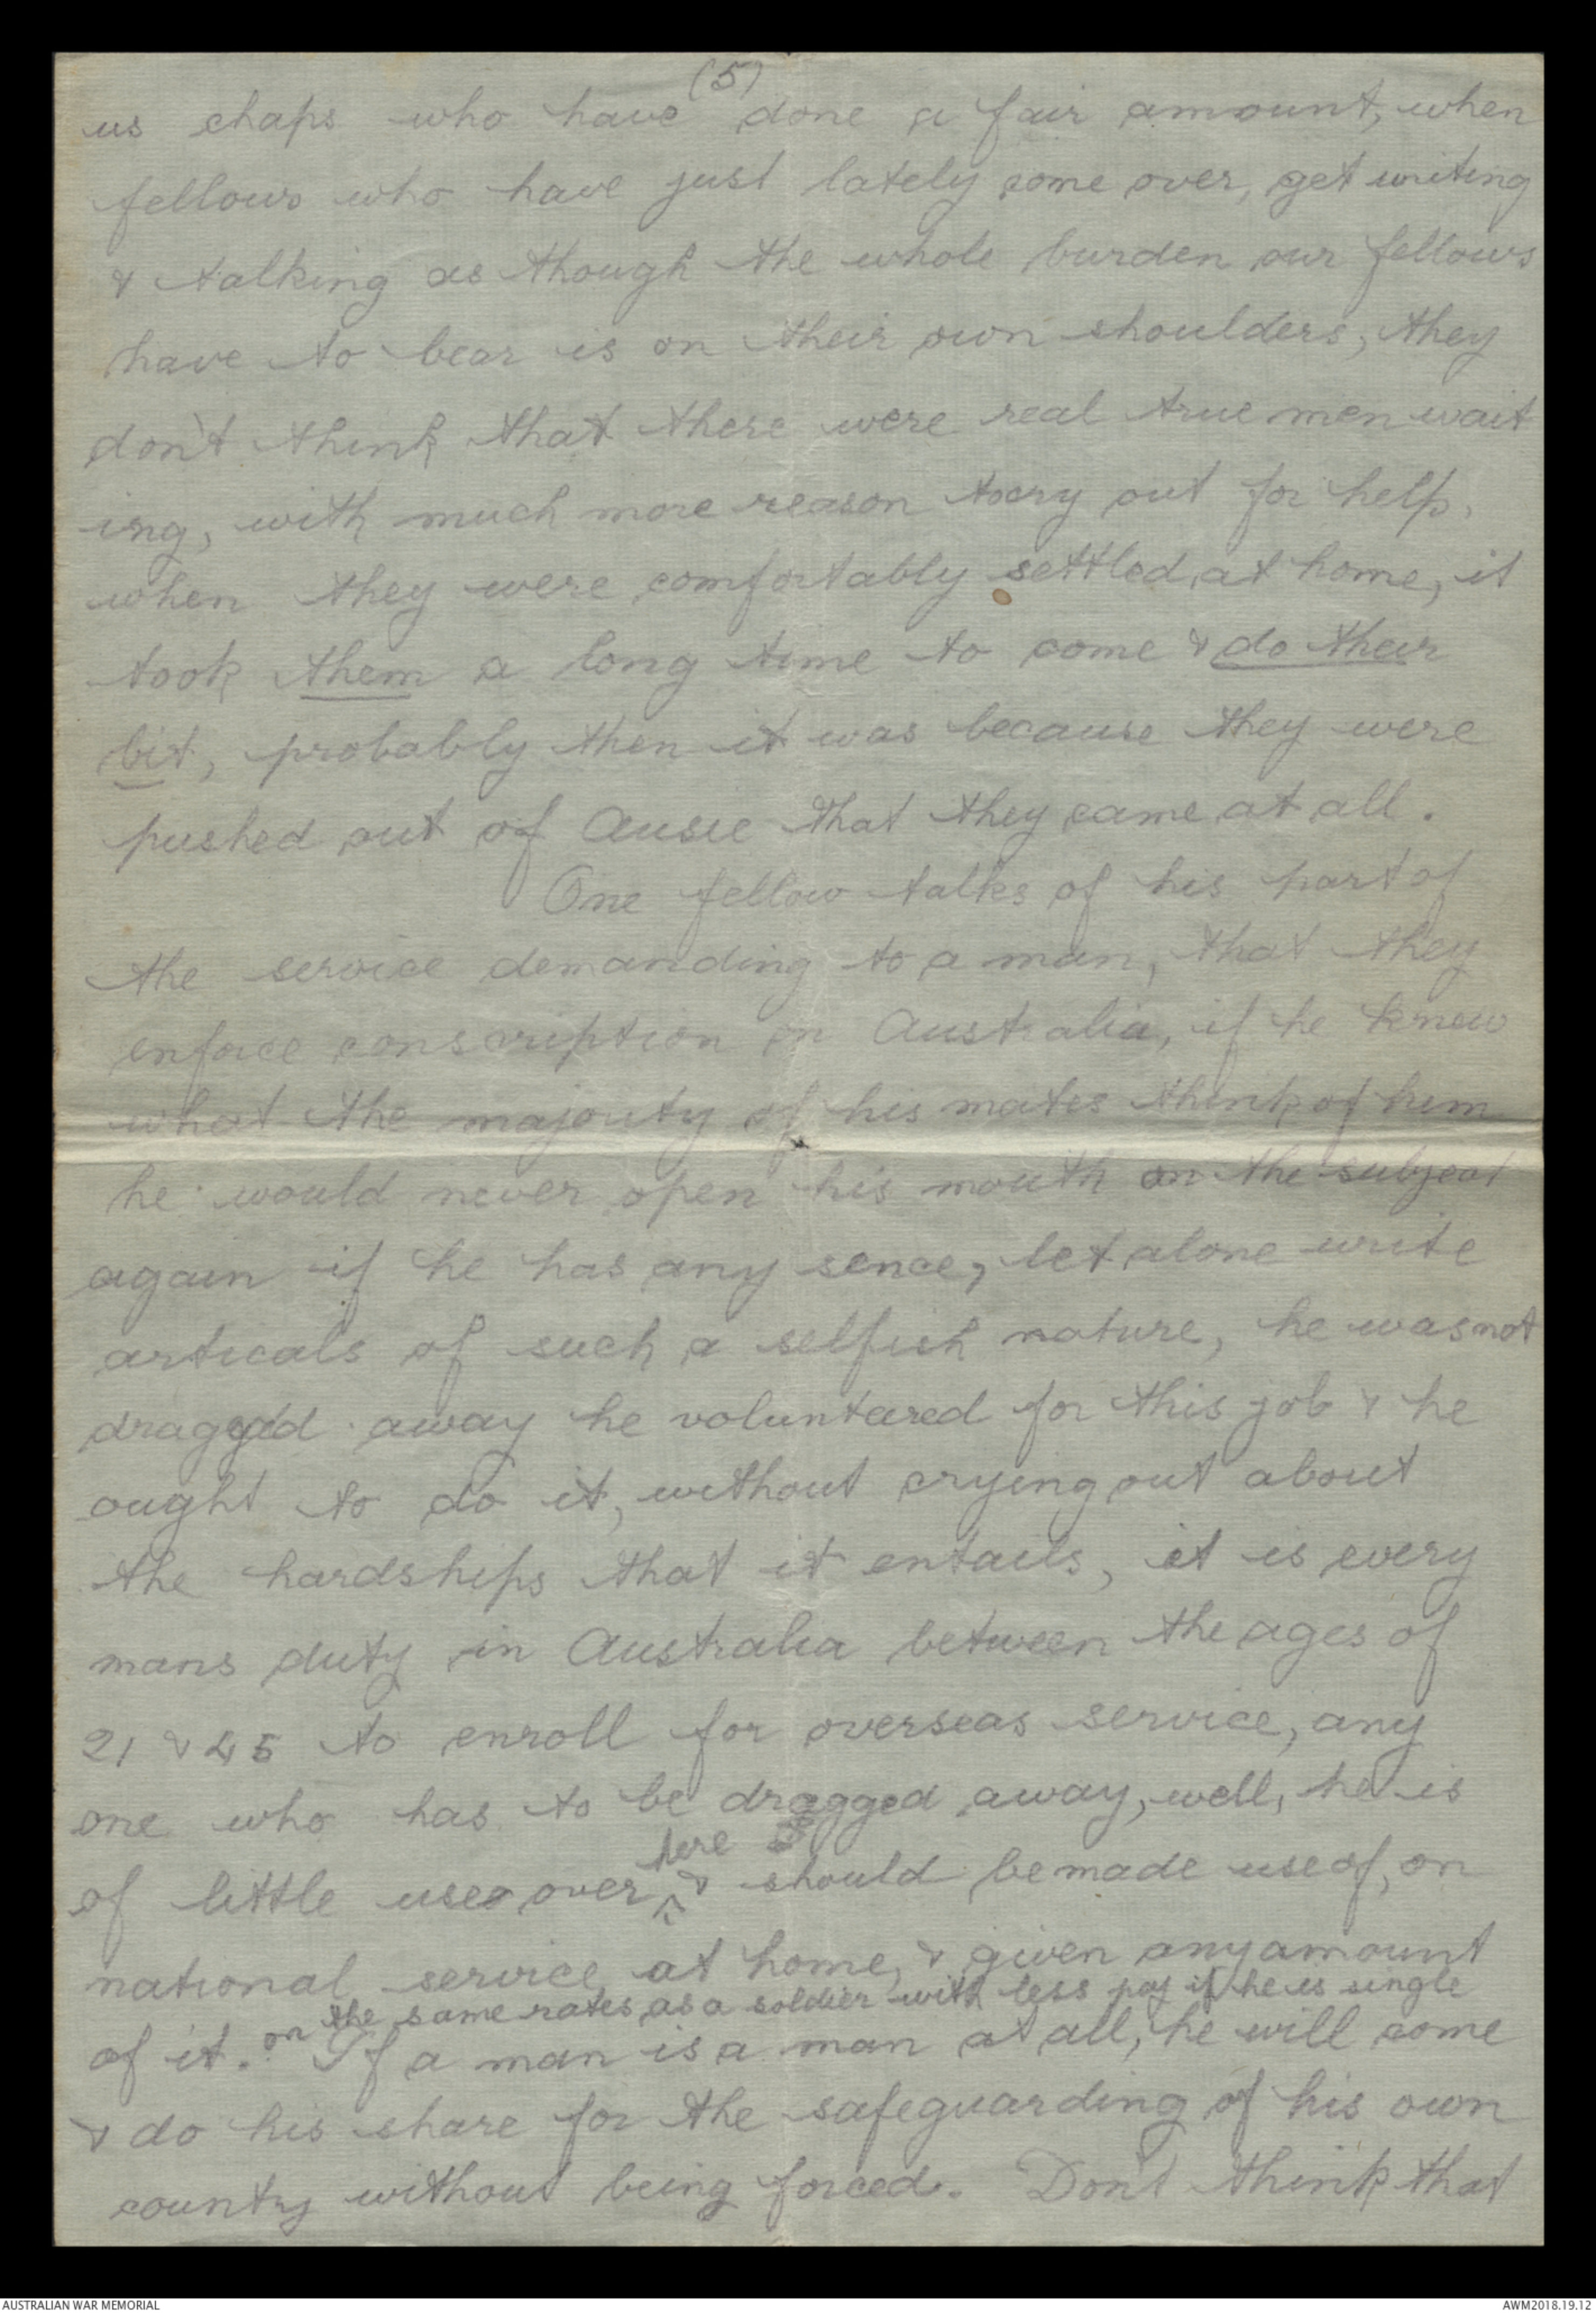 (5)
us chaps who have done a fair amount, when
fellows who have just lately come over, get writing
& talking as though the whole burden our fellows
have to bear is on their own shoulders, they
don't think that there were real true men wait
ing, with much more reason to cry out for help,
when they were comfortably settled at home, it
took them a long time to come & do their
bit, probably then it was because they were
pushed out of Ausie that they came at all.
One fellow talks of his part of
the service demanding to a man, that they
enforce conscription in Australia, if he knew
what the majority of his mates think of him
he would never open his mouth on the subject
again if he has any sence, let alone write
articals of such a selfish nature, he was not
dragged away he volunteered for this job & he
ought to do it, without crying out about
the hardships that it entails, it is every
mans duty in Australia between the ages of
21 & 45 to enroll for overseas service, any
one who has to be dragged away, well, he is
here
of little use over & should be made use of, on
national service at home, & given any amount
on the same rates as a soldier with less pay if he is single
of it. If a man is a man at all, he will come
& do his share for the safeguarding of his own
country without being forced. Don't think that
AUSTRALIAN WAR MEMORIAL
AWM2018.19.12